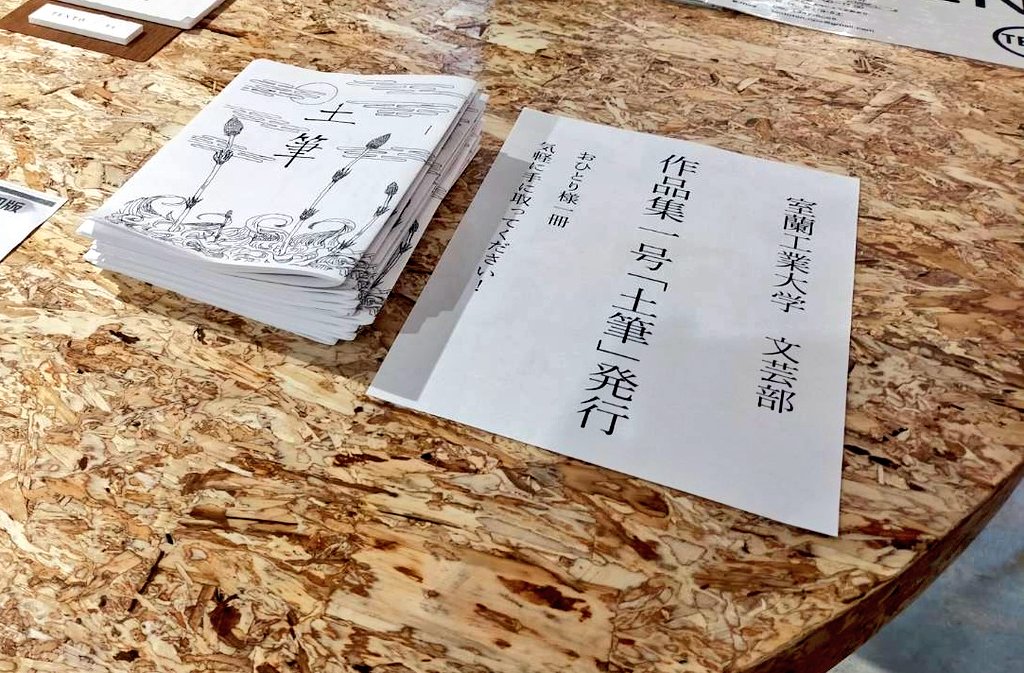 室蘭工業大学　文芸部
作品集一号「土筆」発行
おひとり様一冊
気軽に手に取ってください!
土筆
一
TENTO